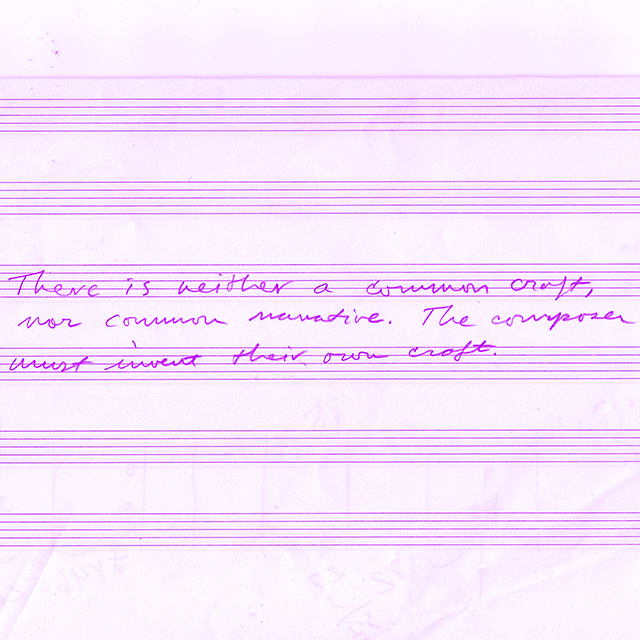 There is neither a common craft,
nor common narrative. The composer
must invent their own craft.